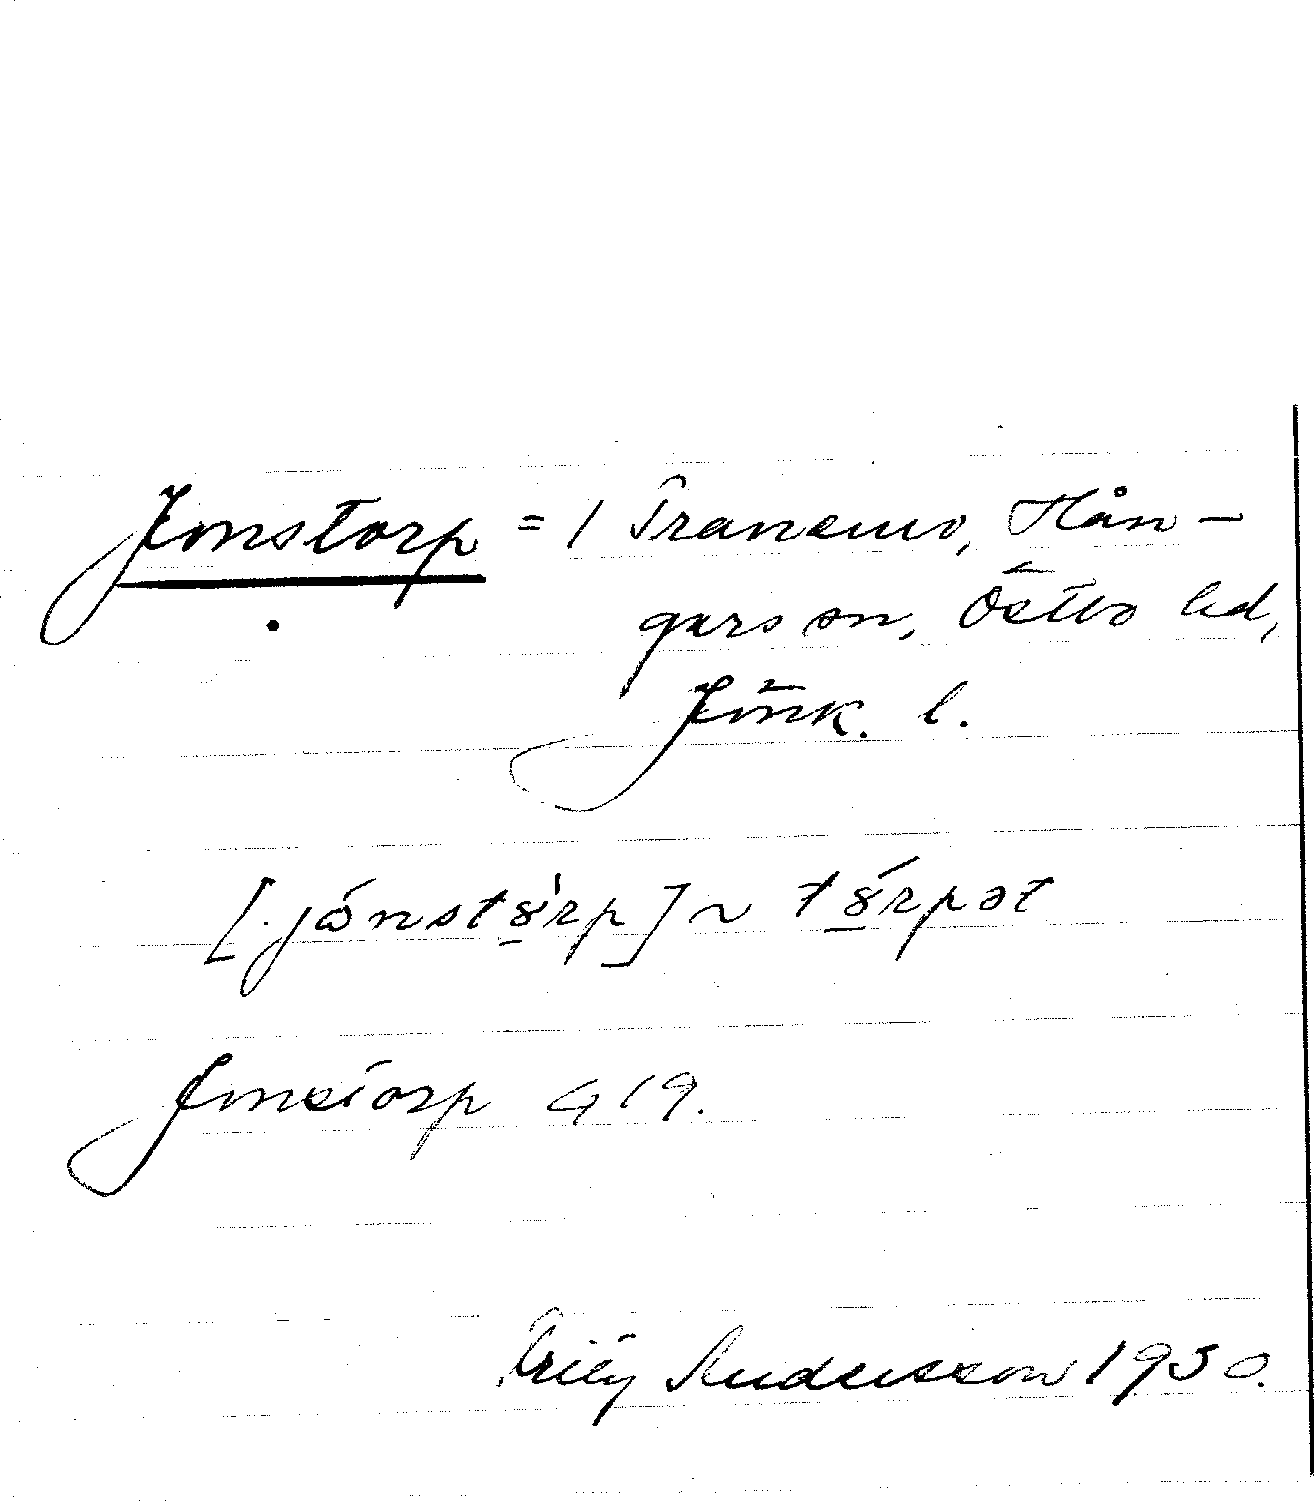 Jonstorp = 1 Tranemo, Hån-
gers sn, Östbo hd,
Jönk. l.
[.jónstȣ̱́rp] ~ tȣ̱́rpət
Jonstorp G 19.
Andersson 1930.